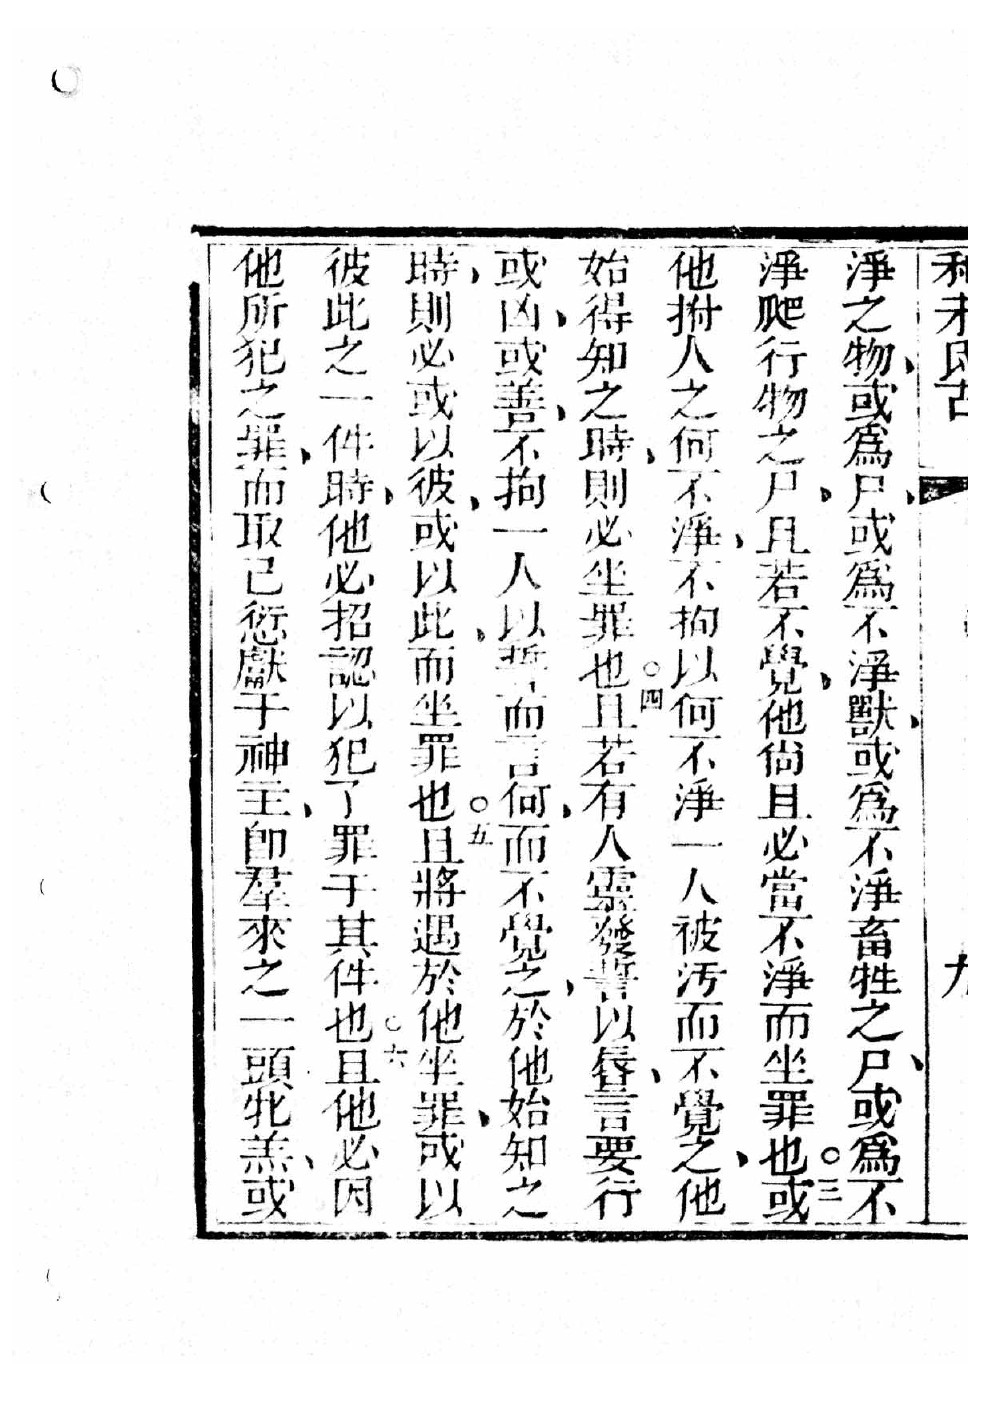 利未氏古
九
淨之物、或爲尸、或爲不淨獸、或爲不淨畜牲之尸、或爲不
淨爬行物之尸、且若不覺、他尙且必當不淨而坐罪也○三或
他拊人之何不淨、不拘以何不淨一人被汚而不覺之、他
始得知之時、則必坐罪也○四且若有人靈發誓以唇、言要行
或凶、或善、不拘一人以誓而言何、而不覺之、於他始知之
時、則必或以彼、或以此、而坐罪也○五且將遇於他坐罪、或以
彼此之一件時、他必招認以犯了罪于其件也○六且他必因
他所犯之罪、而取己愆獻于神主、卽羣來之一頭牝羔、或